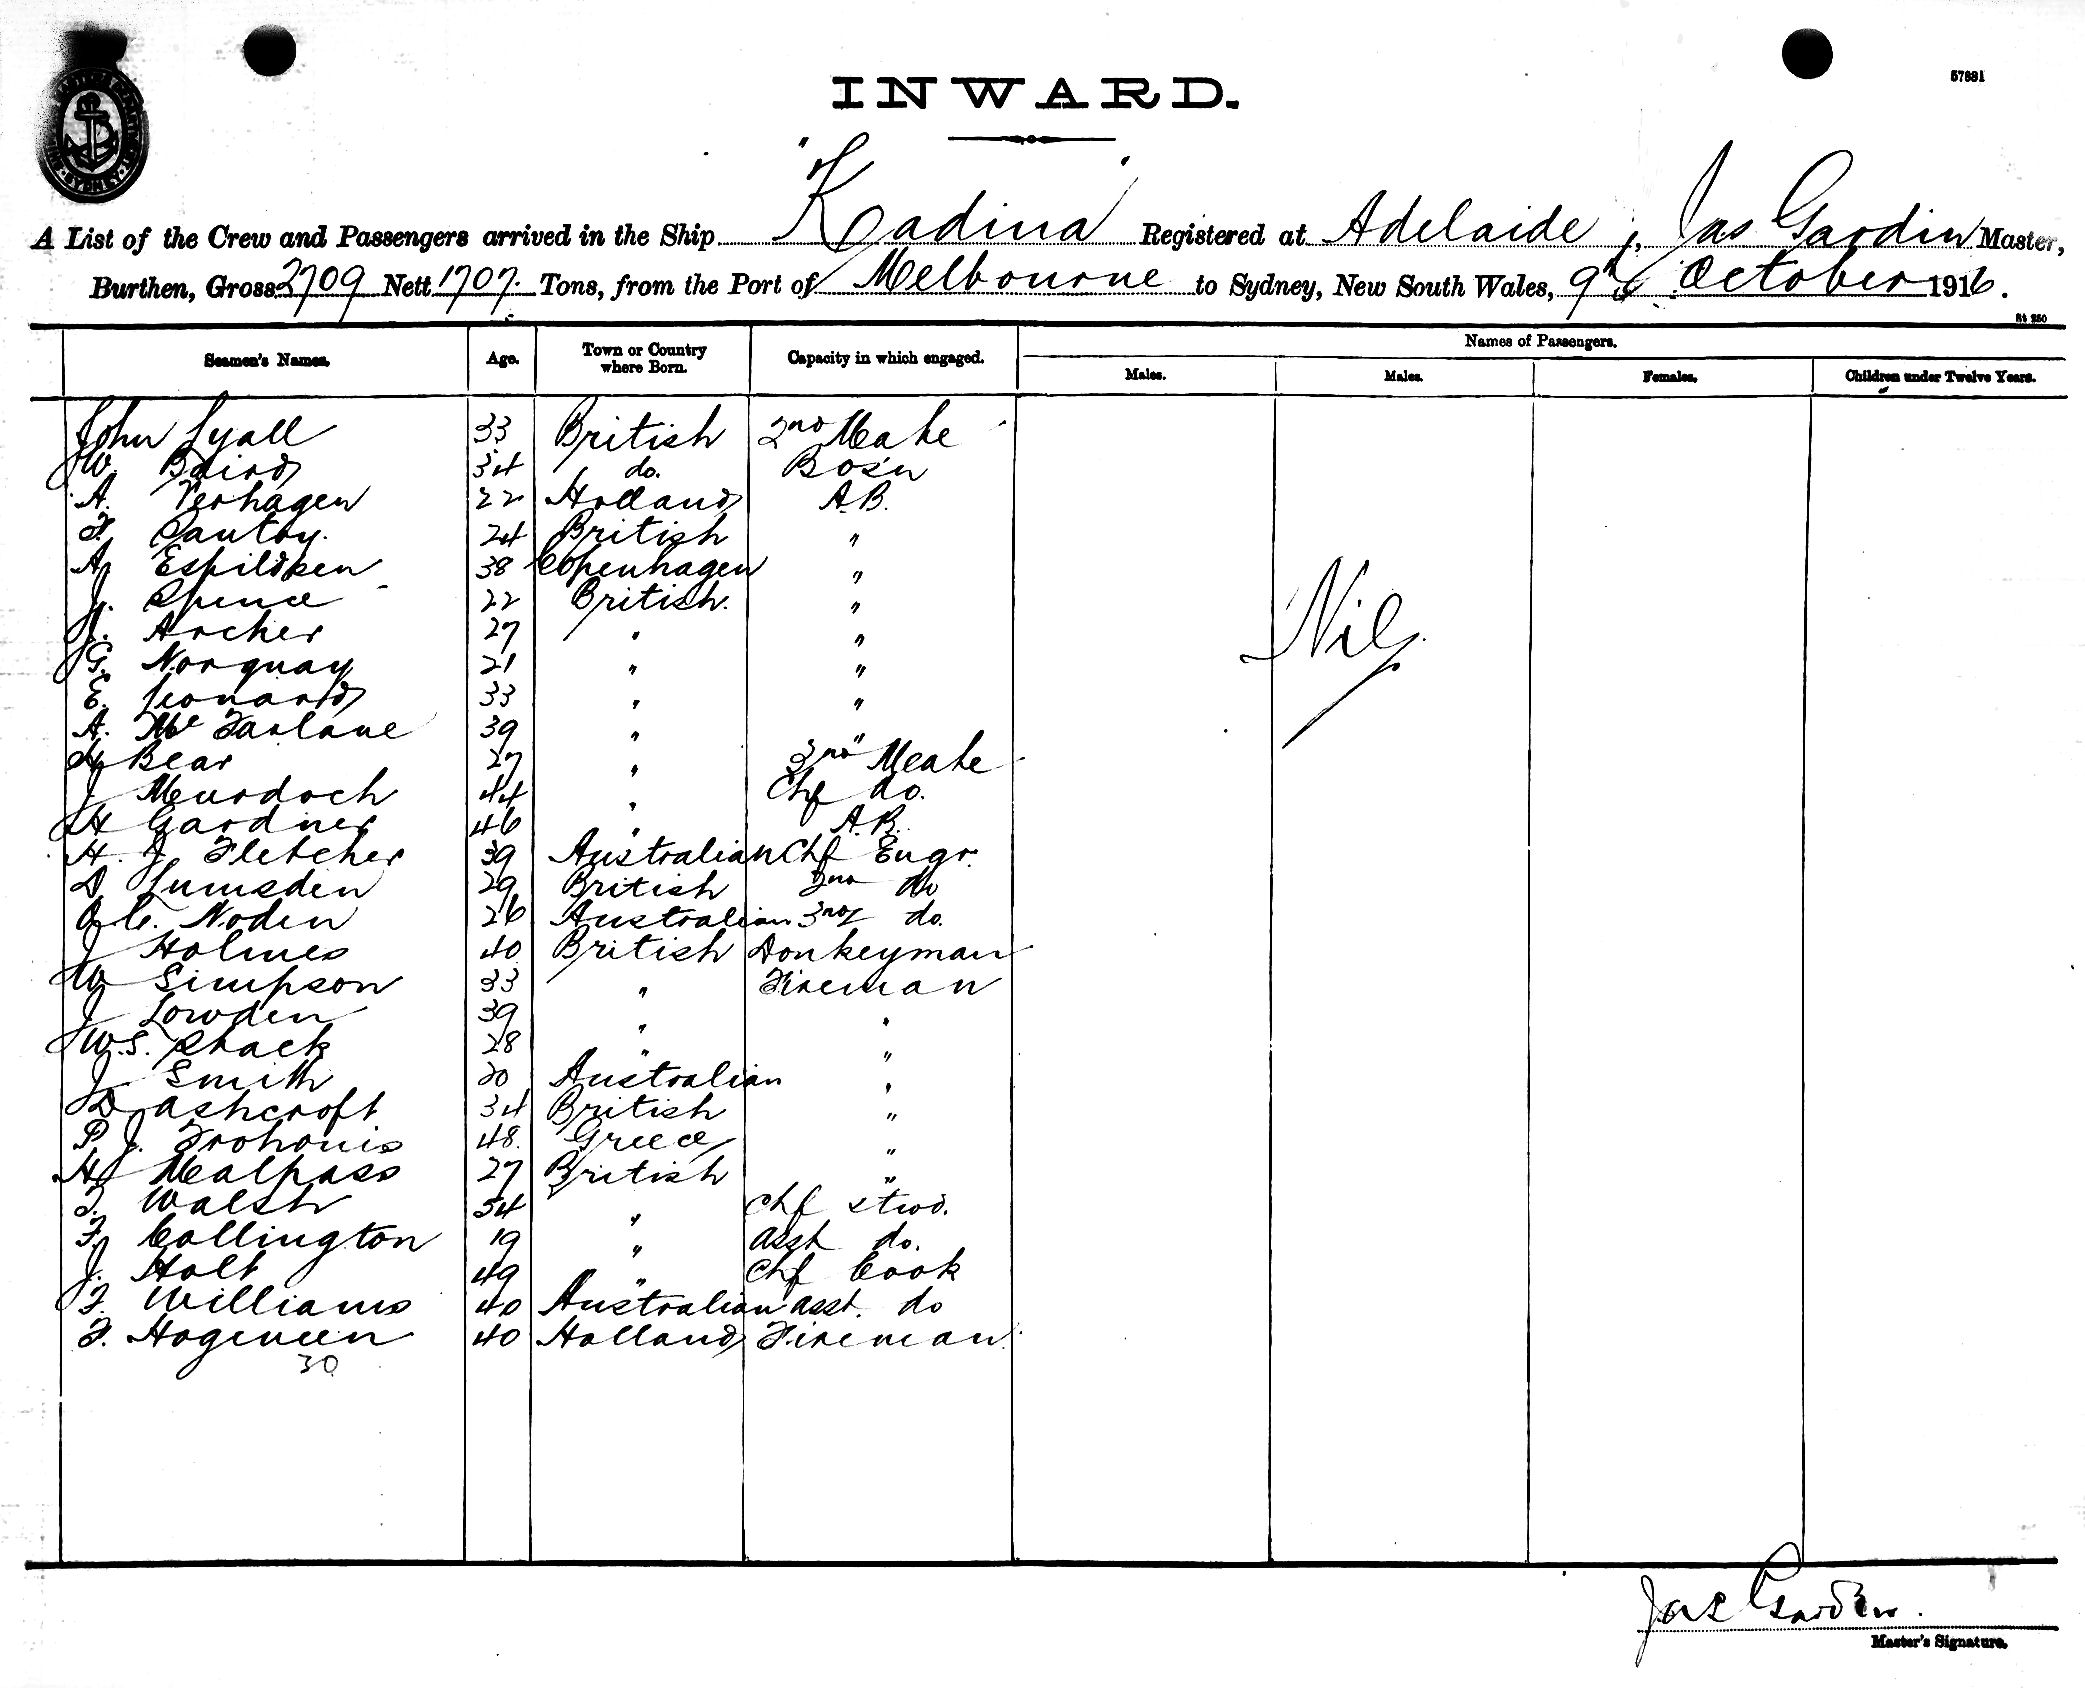 57881
INWARD.
A List of the Crew and Passengers arrived in the Ship "Kadina" Registered at Adelaide, Jas Gardin Master,
Burthen, Gross 2709 Nett 1707. Tons, from the Port of Melbourne to Sydney, New South Wales, 9th October 1916.
St 250
Seamen's Names. Age. Town or Country where Born. Capacity in which engaged. Names of Passengers.
Males. Males. Females. Children under Twelve Years.
John Lyall 33 British 2nd Mate
W. Baird 34 do. Bosn
A. Verhagen 22 Holland A.B.
F. Santoy. 24 British "
A. Espildsen 38 Copenhagen "
J. Spence 22 British. "
J. Archer 27 " "
G. Norquay 21 " "
E. Leonard 33 " "
A. Mc Farlane 39 " "
H Bear 27 " 3rd Mate
J Murdoch 44 " Chf do.
H Gardner 46 " A.B.
H. J. Fletcher 39 Australian Chf Engr.
D Lumsden 29 British 2nd do
O.C. Noden 26 Australian 3rd do.
J Holmes 40 British Donkeyman
W Simpson 33 " Fireman
J Lowden 39 " "
W.S. Shack 28 " "
J Smith 20 Australian "
D Ashcroft 34 British "
P. J. Frohonis 48. Greece "
H Malpass 27 British "
T. Walsh 54 " Chf stwd.
F. Collington 19 " Asst do.
J. Holt 49 " Chf Cook
F. Williams 40 Australian asst. do
F. Hogeveen 40 Holland Fireman.
30
Nil
Jas Garden.
Master's Signature.